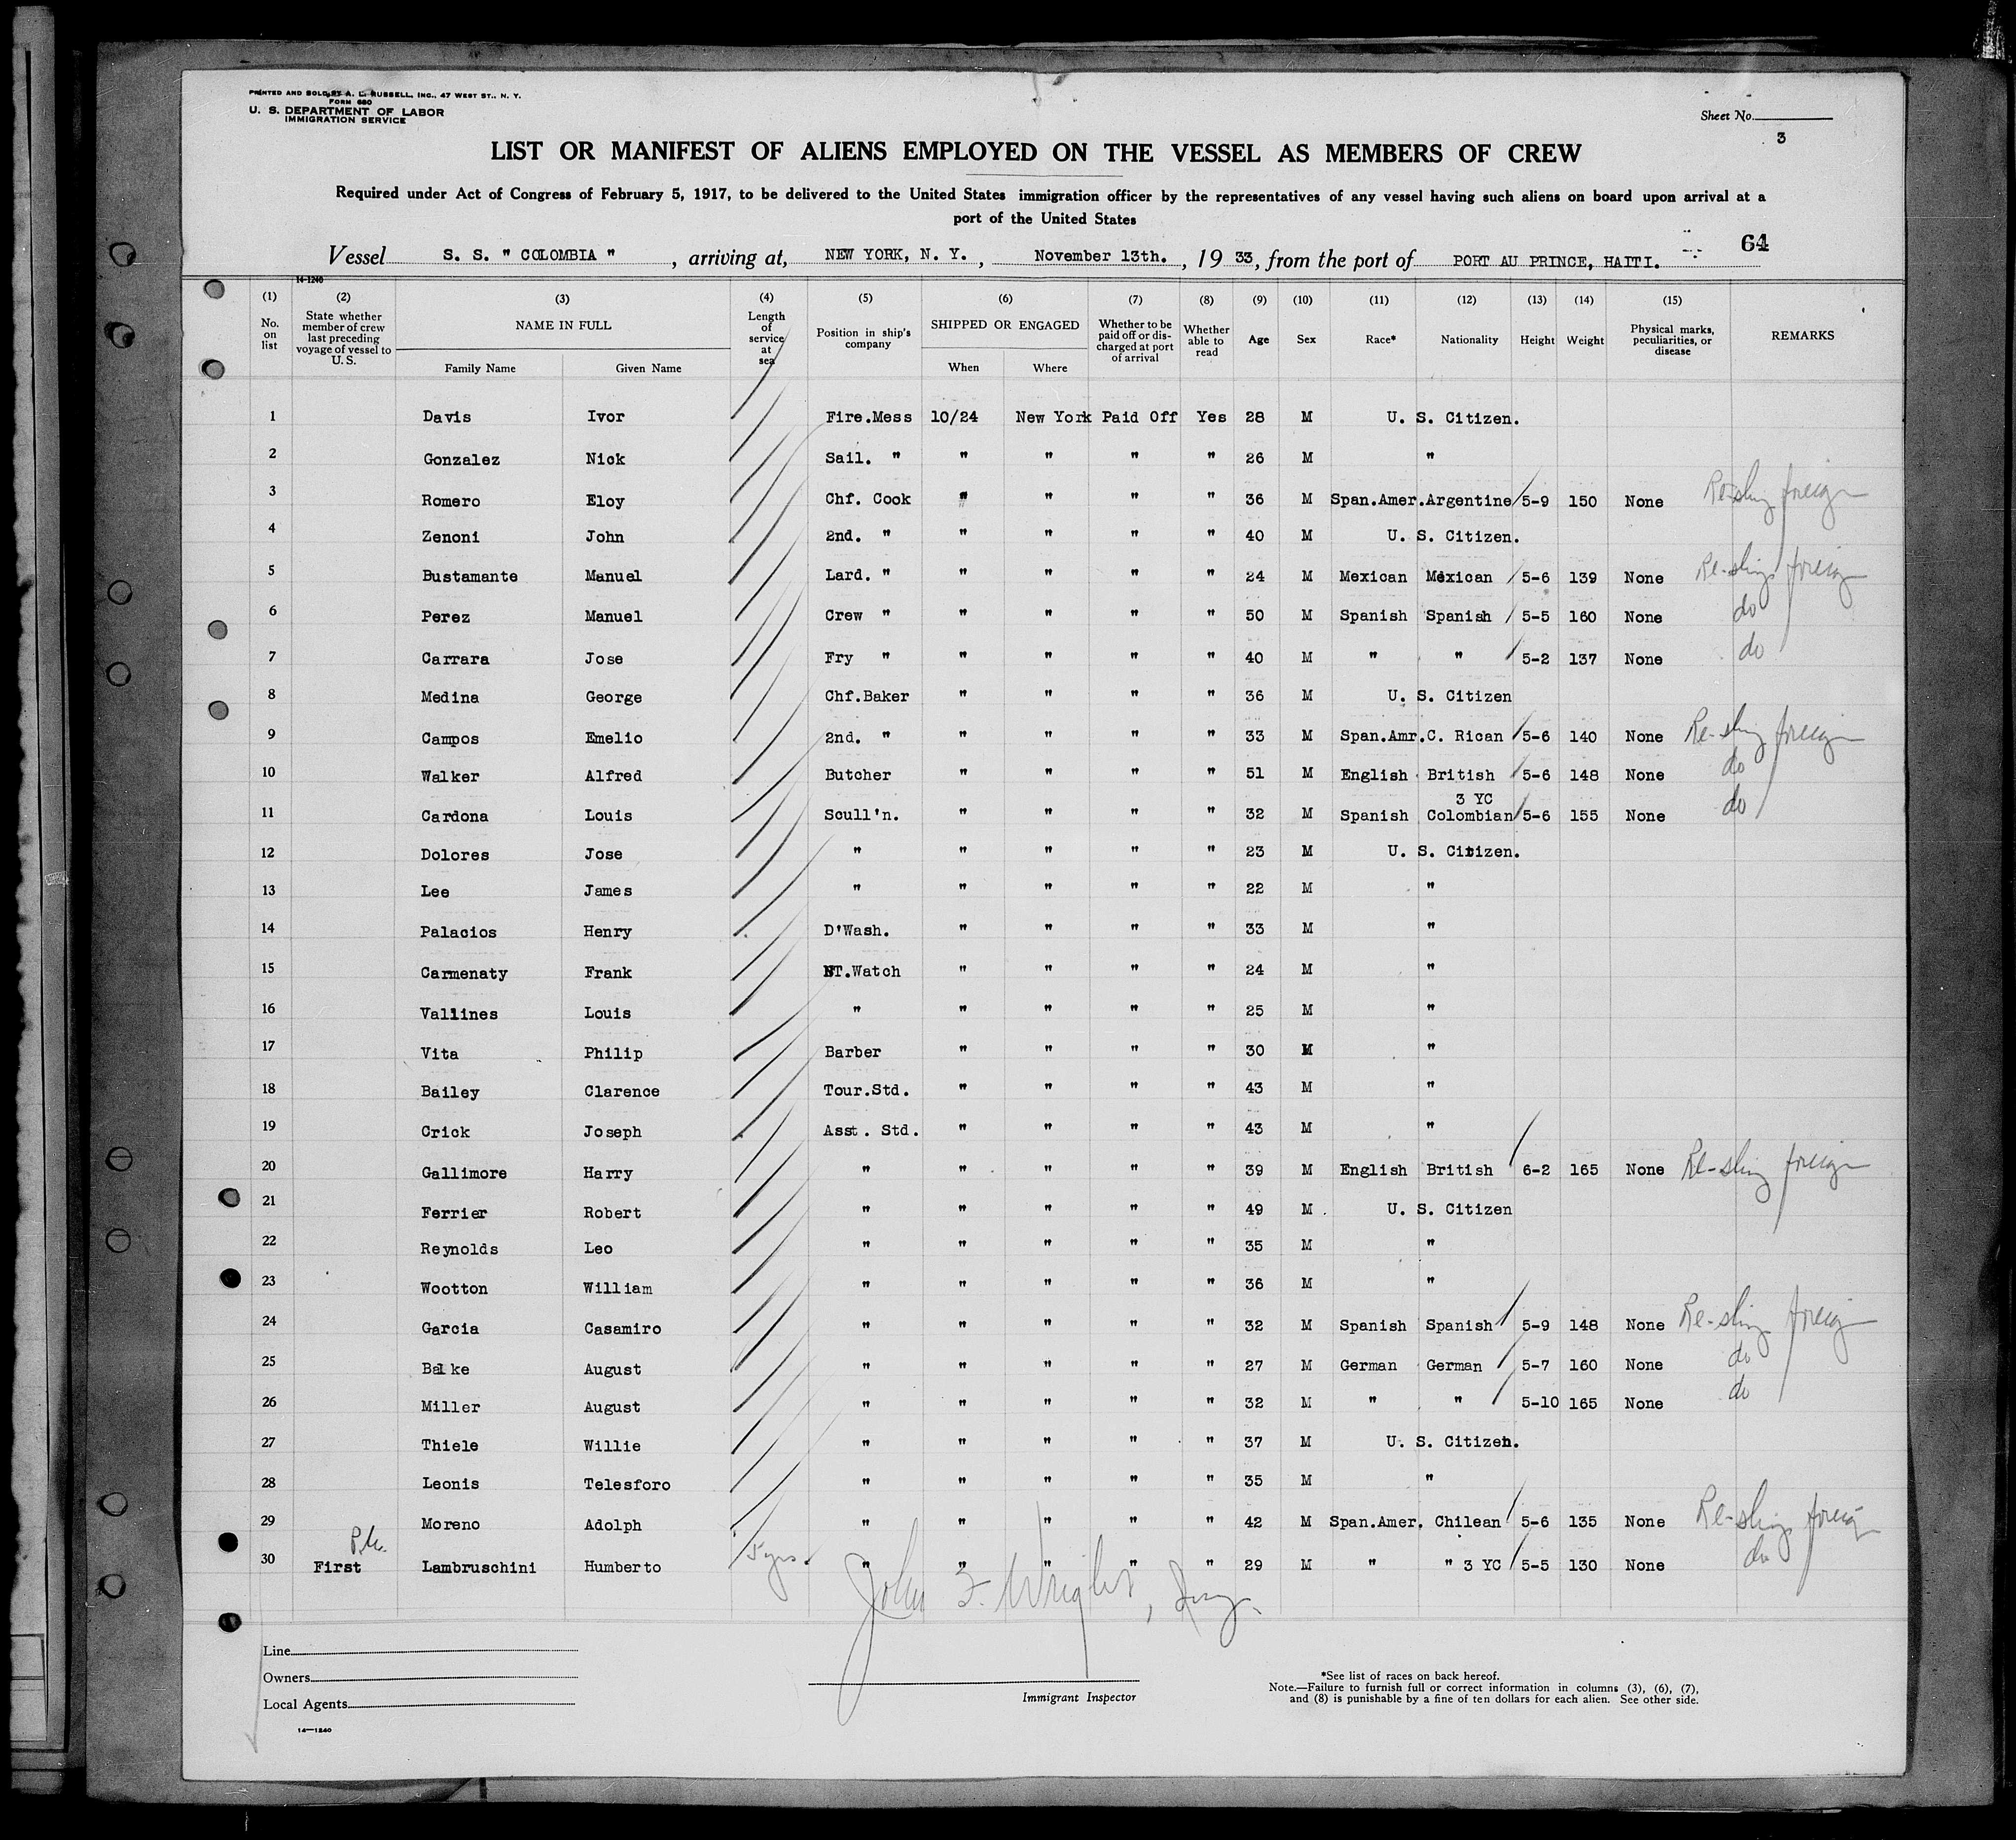 PRINTED AND SOLD BY A. L. RUSSELL, INC., 47 WEST ST., N. Y.
FORM 680
U. S. DEPARTMENT OF LABOR
IMMIGRATION SERVICE
Sheet No.
3
LIST OR MANIFEST OF ALIENS EMPLOYED ON THE VESSEL AS MEMBERS OF CREW
Required under Act of Congress of February 5, 1917, to be delivered to the United States immigration officer by the representatives of any vessel having such aliens on board upon arrival at a
port of the United States
64
Vessel S. S. " COLOMBIA ", arriving at, NEW YORK, N. Y., November 13th., 19 33, from the port of PORT AU PRINCE, HAITI.
14-1240
(1) (2) (3) (4) (5) (6) (7) (8) (9) (10) (11) (12) (13) (14) (15)
No. on list
State whether member of crew last preceding voyage of vessel to U. S.
NAME IN FULL
Family Name Given Name
Length of service at sea
Position in ship's company
SHIPPED OR ENGAGED
When Where
Whether to be paid off or discharged at port of arrival
Whether able to read
Age Sex Race* Nationality Height Weight
Physical marks, peculiarities, or disease
REMARKS
1 Davis Ivor Fire.Mess 10/24 New York Paid Off Yes 28 M U. S. Citizen.
2 Gonzalez Nick Sail. " " " " " 26 M "
3 Romero Eloy Chf. Cook " " " " 36 M Span.Amer. Argentine 5-9 150 None Re-shing foreign
4 Zenoni John 2nd. " " " " " 40 M U. S. Citizen.
5 Bustamante Manuel Lard. " " " " " 24 M Mexican Mexican 5-6 139 None Re-shing foreign
6 Perez Manuel Crew " " " " " 50 M Spanish Spanish 5-5 160 None do
7 Carrara Jose Fry " " " " " 40 M " " 5-2 137 None do
8 Medina George Chf.Baker " " " " 36 M U. S. Citizen
9 Campos Emelio 2nd. " " " " " 33 M Span.Amr. C. Rican 5-6 140 None Re-shing foreign
10 Walker Alfred Butcher " " " " 51 M English British 5-6 148 None do
3 YC
11 Cardona Louis Scull'n. " " " " 32 M Spanish Colombian 5-6 155 None do
12 Dolores Jose " " " " " 23 M U. S. Citizen.
13 Lee James " " " " " 22 M "
14 Palacios Henry D'Wash. " " " " 33 M "
15 Carmenaty Frank NT.Watch " " " " 24 M "
16 Vallines Louis " " " " " 25 M "
17 Vita Philip Barber " " " " 30 M "
18 Bailey Clarence Tour.Std. " " " " 43 M "
19 Crick Joseph Asst. Std. " " " " 43 M "
20 Gallimore Harry " " " " " 39 M English British 6-2 165 None Re-shing foreign
21 Ferrier Robert " " " " " 49 M U. S. Citizen
22 Reynolds Leo " " " " " 35 M "
23 Wootton William " " " " " 36 M "
24 Garcia Casamiro " " " " " 32 M Spanish Spanish 5-9 148 None Re-shing foreign
25 Balke August " " " " " 27 M German German 5-7 160 None do
26 Miller August " " " " " 32 M " " 5-10 165 None do
27 Thiele Willie " " " " " 37 M U. S. Citizen.
28 Leonis Telesforo " " " " " 35 M "
29 Moreno Adolph " " " " " 42 M Span.Amer. Chilean 5-6 135 None Re-shing foreign
30 First Lambruschini Humberto 5 yrs. " " " " " 29 M " " 3 YC 5-5 130 None do
John F. Wright
Line
Owners
Local Agents
Immigrant Inspector
*See list of races on back hereof.
Note.—Failure to furnish full or correct information in columns (3), (6), (7),
and (8) is punishable by a fine of ten dollars for each alien. See other side.
14—1240